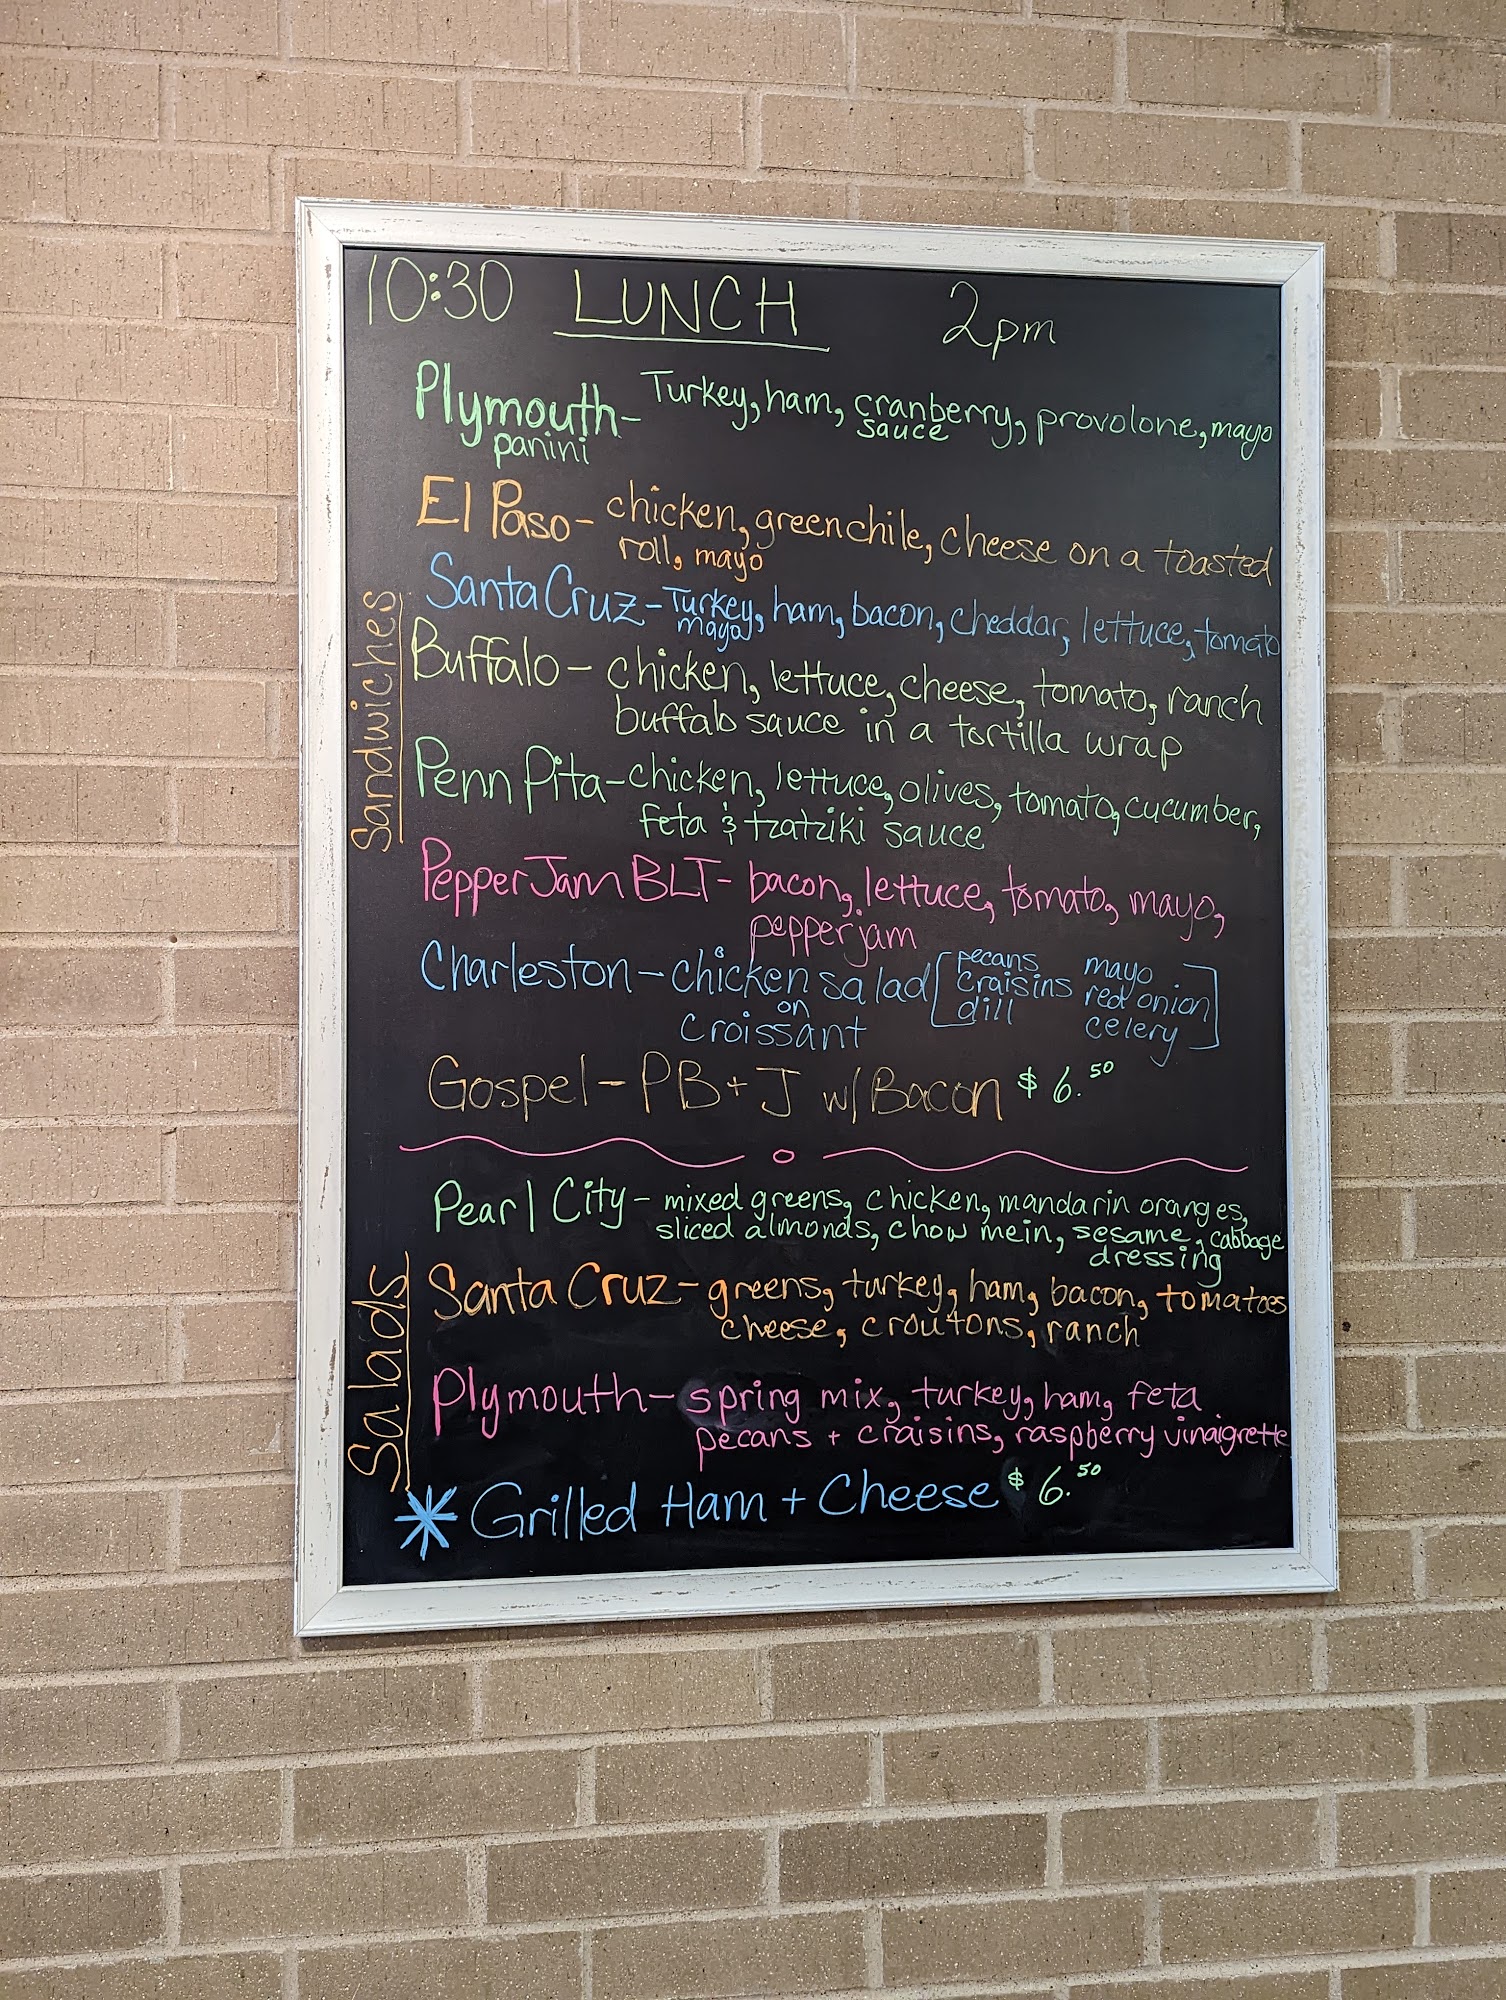 10:30 LUNCH 2pm
Plymouth- Turkey, ham, cranberry, provolone, mayo
panini sauce
El Paso- chicken, green chile, cheese on a toasted
roll, mayo
Sandwiches
Santa Cruz- Turkey, ham, bacon, cheddar, lettuce, tomato
mayo
Buffalo- chicken, lettuce, cheese, tomato, ranch
buffalo sauce in a tortilla wrap
Penn Pita- chicken, lettuce, olives, tomato, cucumber,
feta & tzatziki sauce
Pepper Jam BLT- bacon, lettuce, tomato, mayo,
pepper jam
Charleston- chicken salad [pecans mayo
craisins red onion
on dill celery]
croissant
Gospel- PB+J w/ Bacon $6.50
Pearl City- mixed greens, chicken, mandarin oranges,
sliced almonds, chow mein, sesame, cabbage
dressing
Salads
Santa Cruz- greens, turkey, ham, bacon, tomatoes
cheese, croutons, ranch
Plymouth- spring mix, turkey, ham, feta
pecans + craisins, raspberry vinaigrette
* Grilled Ham + Cheese $6.50